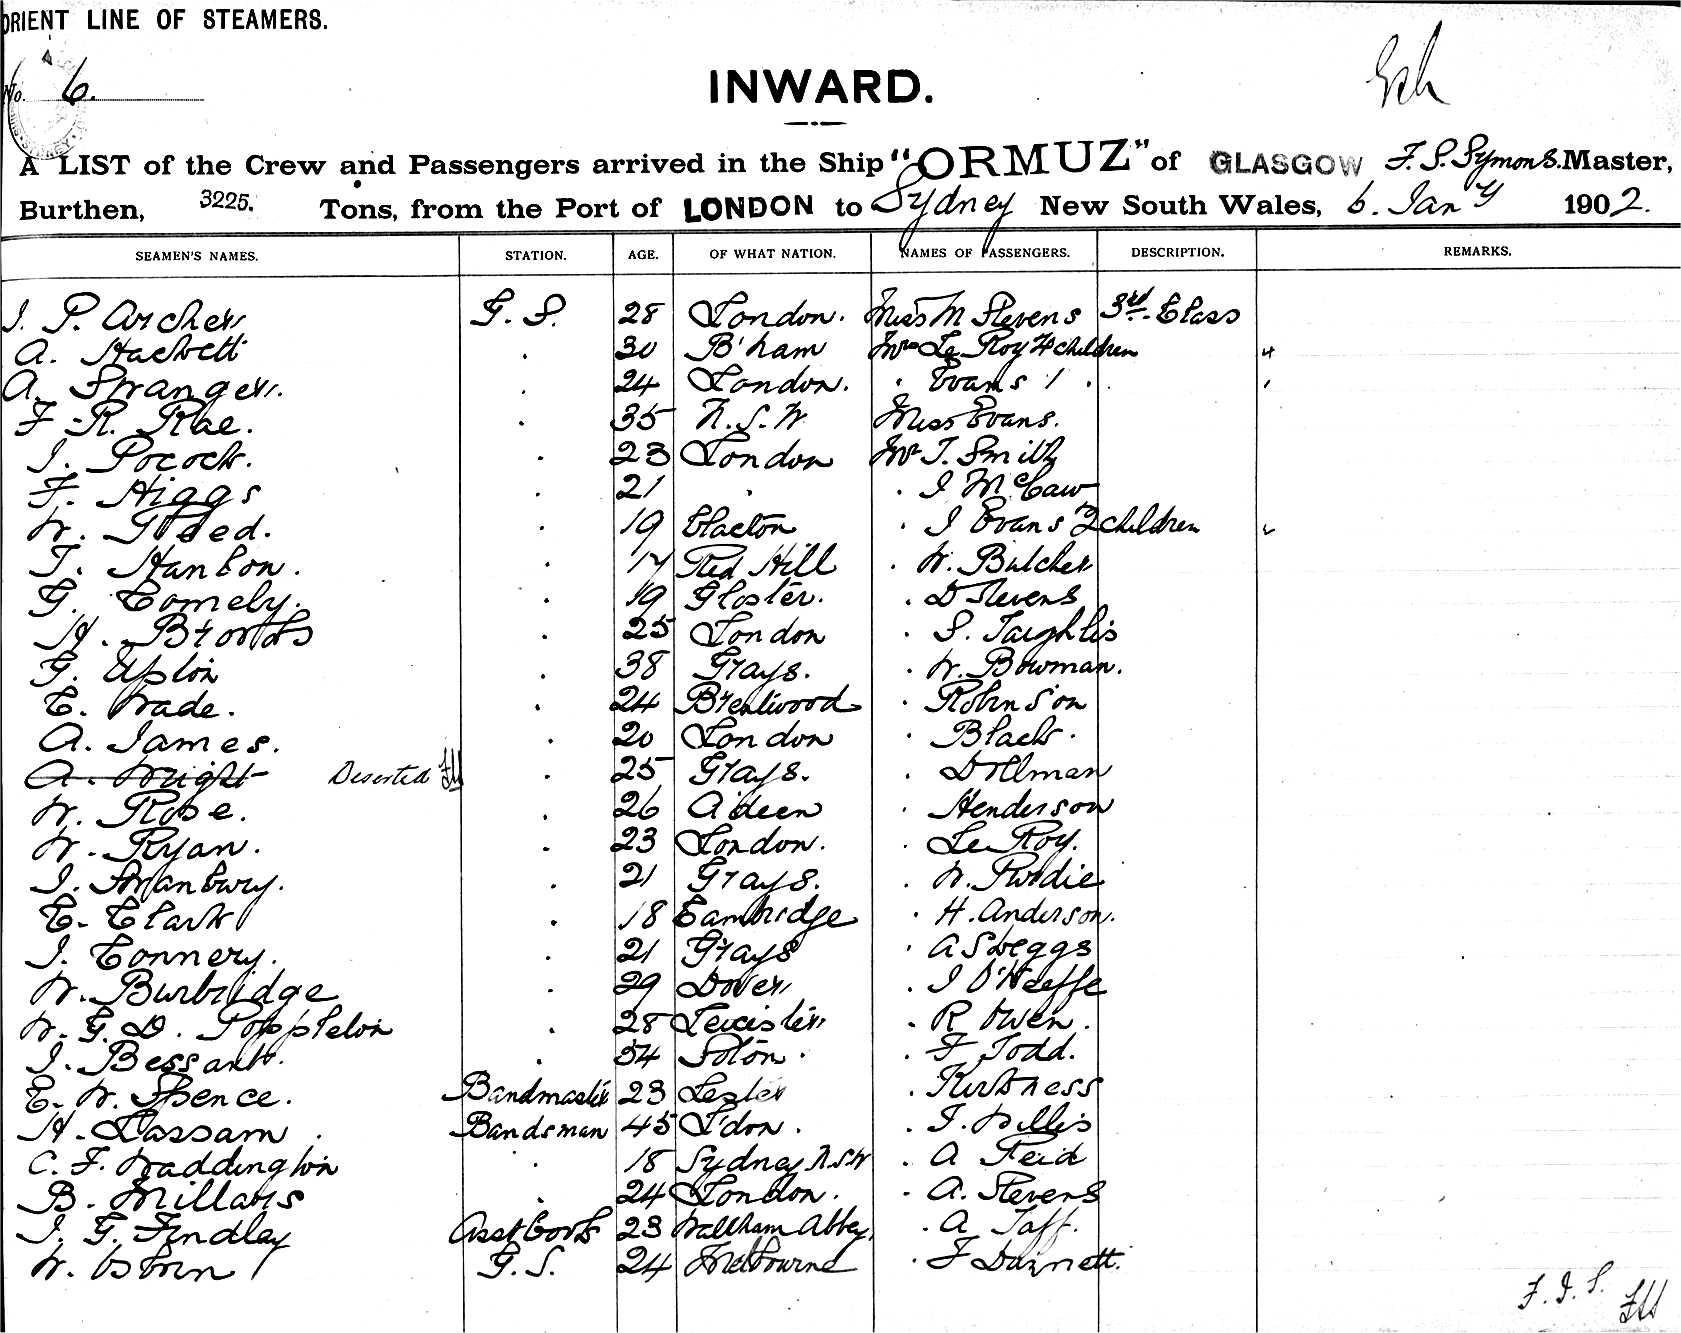 ORIENT LINE OF STEAMERS.
No. 6.
INWARD.
A LIST of the Crew and Passengers arrived in the Ship "ORMUZ" of GLASGOW F. S. Symons. Master,
Burthen, 3225. Tons, from the Port of LONDON to Sydney New South Wales, 6. Jany 1902.
SEAMEN'S NAMES. STATION. AGE. OF WHAT NATION. NAMES OF PASSENGERS. DESCRIPTION. REMARKS.
J. P. Archer G. S. 28 London. Miss M Stevens 3rd Class
A. Hackett . 30 B'ham Mrs Le Roy 4 children 4
A. Stranger. . 24 London. . Evans 1 . '
F. R. Rae. . 35 N.S.W Miss Evans.
J. Pocock. . 23 London Mr T. Smith
F. Higgs . 21 . . J McCaw
W. Steed. . 19 Clacton . J Evans 2 children
T. Hanton. . 17 Red Hill . W. Butcher
G. Comely. . 19 Gloster. . D Stevens
H. Brooks . 25 London . S.
G. Upton . 38 Grays. . W. Bowman.
E. Wade. . 24 Brentwood . Robinson
A. James. . 20 London . Black.
A. Wright Deserted . 25 Grays. . Dollman
W. Rose. . 26 A'deen . Henderson
W. Ryan. . 23 London. . Le Roy.
J. Stanbury. . 21 Grays. . W. Purdie
E. Clark . 18 Cambridge . H. Anderson.
J. Connery. . 21 Grays . A Skeggs
W. Burbridge . 29 Dover . J O'Keeffe
W. G. D. Poppleton . 28 Leicister . R Owen.
J. Bessant. . 34 Soton. . F Todd.
E. W. Spence. Bandmaster 23 Lester . Kirkness
H. Lassam. Bandsman 45 L'don. . J. Willis
C. F. Waddington . 18 Sydney N.S.W . A Reid
B. Millars . 24 London. . A. Stevens
J. G. Findlay Asst Cook 23 Waltham Abbey. . A Taff.
W. Osborn G. S. 24 Melbourne . F
F. J. S.